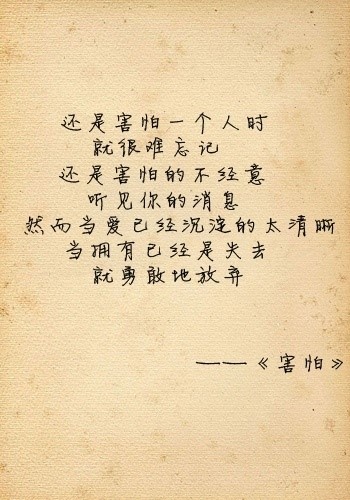 还是害怕一个人时
就很难忘记
还是害怕的不经意
听见你的消息
然而当爱已经沉淀的太清晰
当拥有已经是失去
就勇敢地放弃
——《害怕》